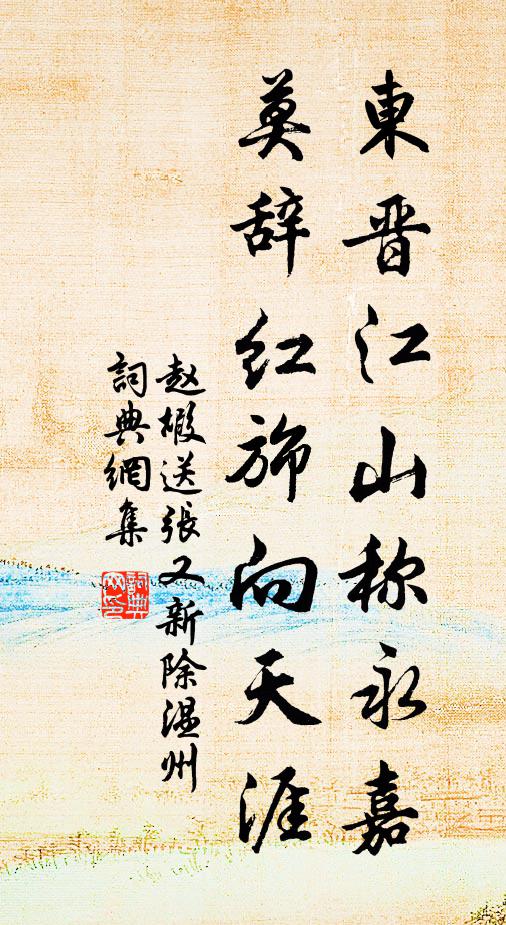 東晋江山称永嘉
莫辞红旆向天涯
赵嘏送張又新除温州
詞典網集
詞典網印